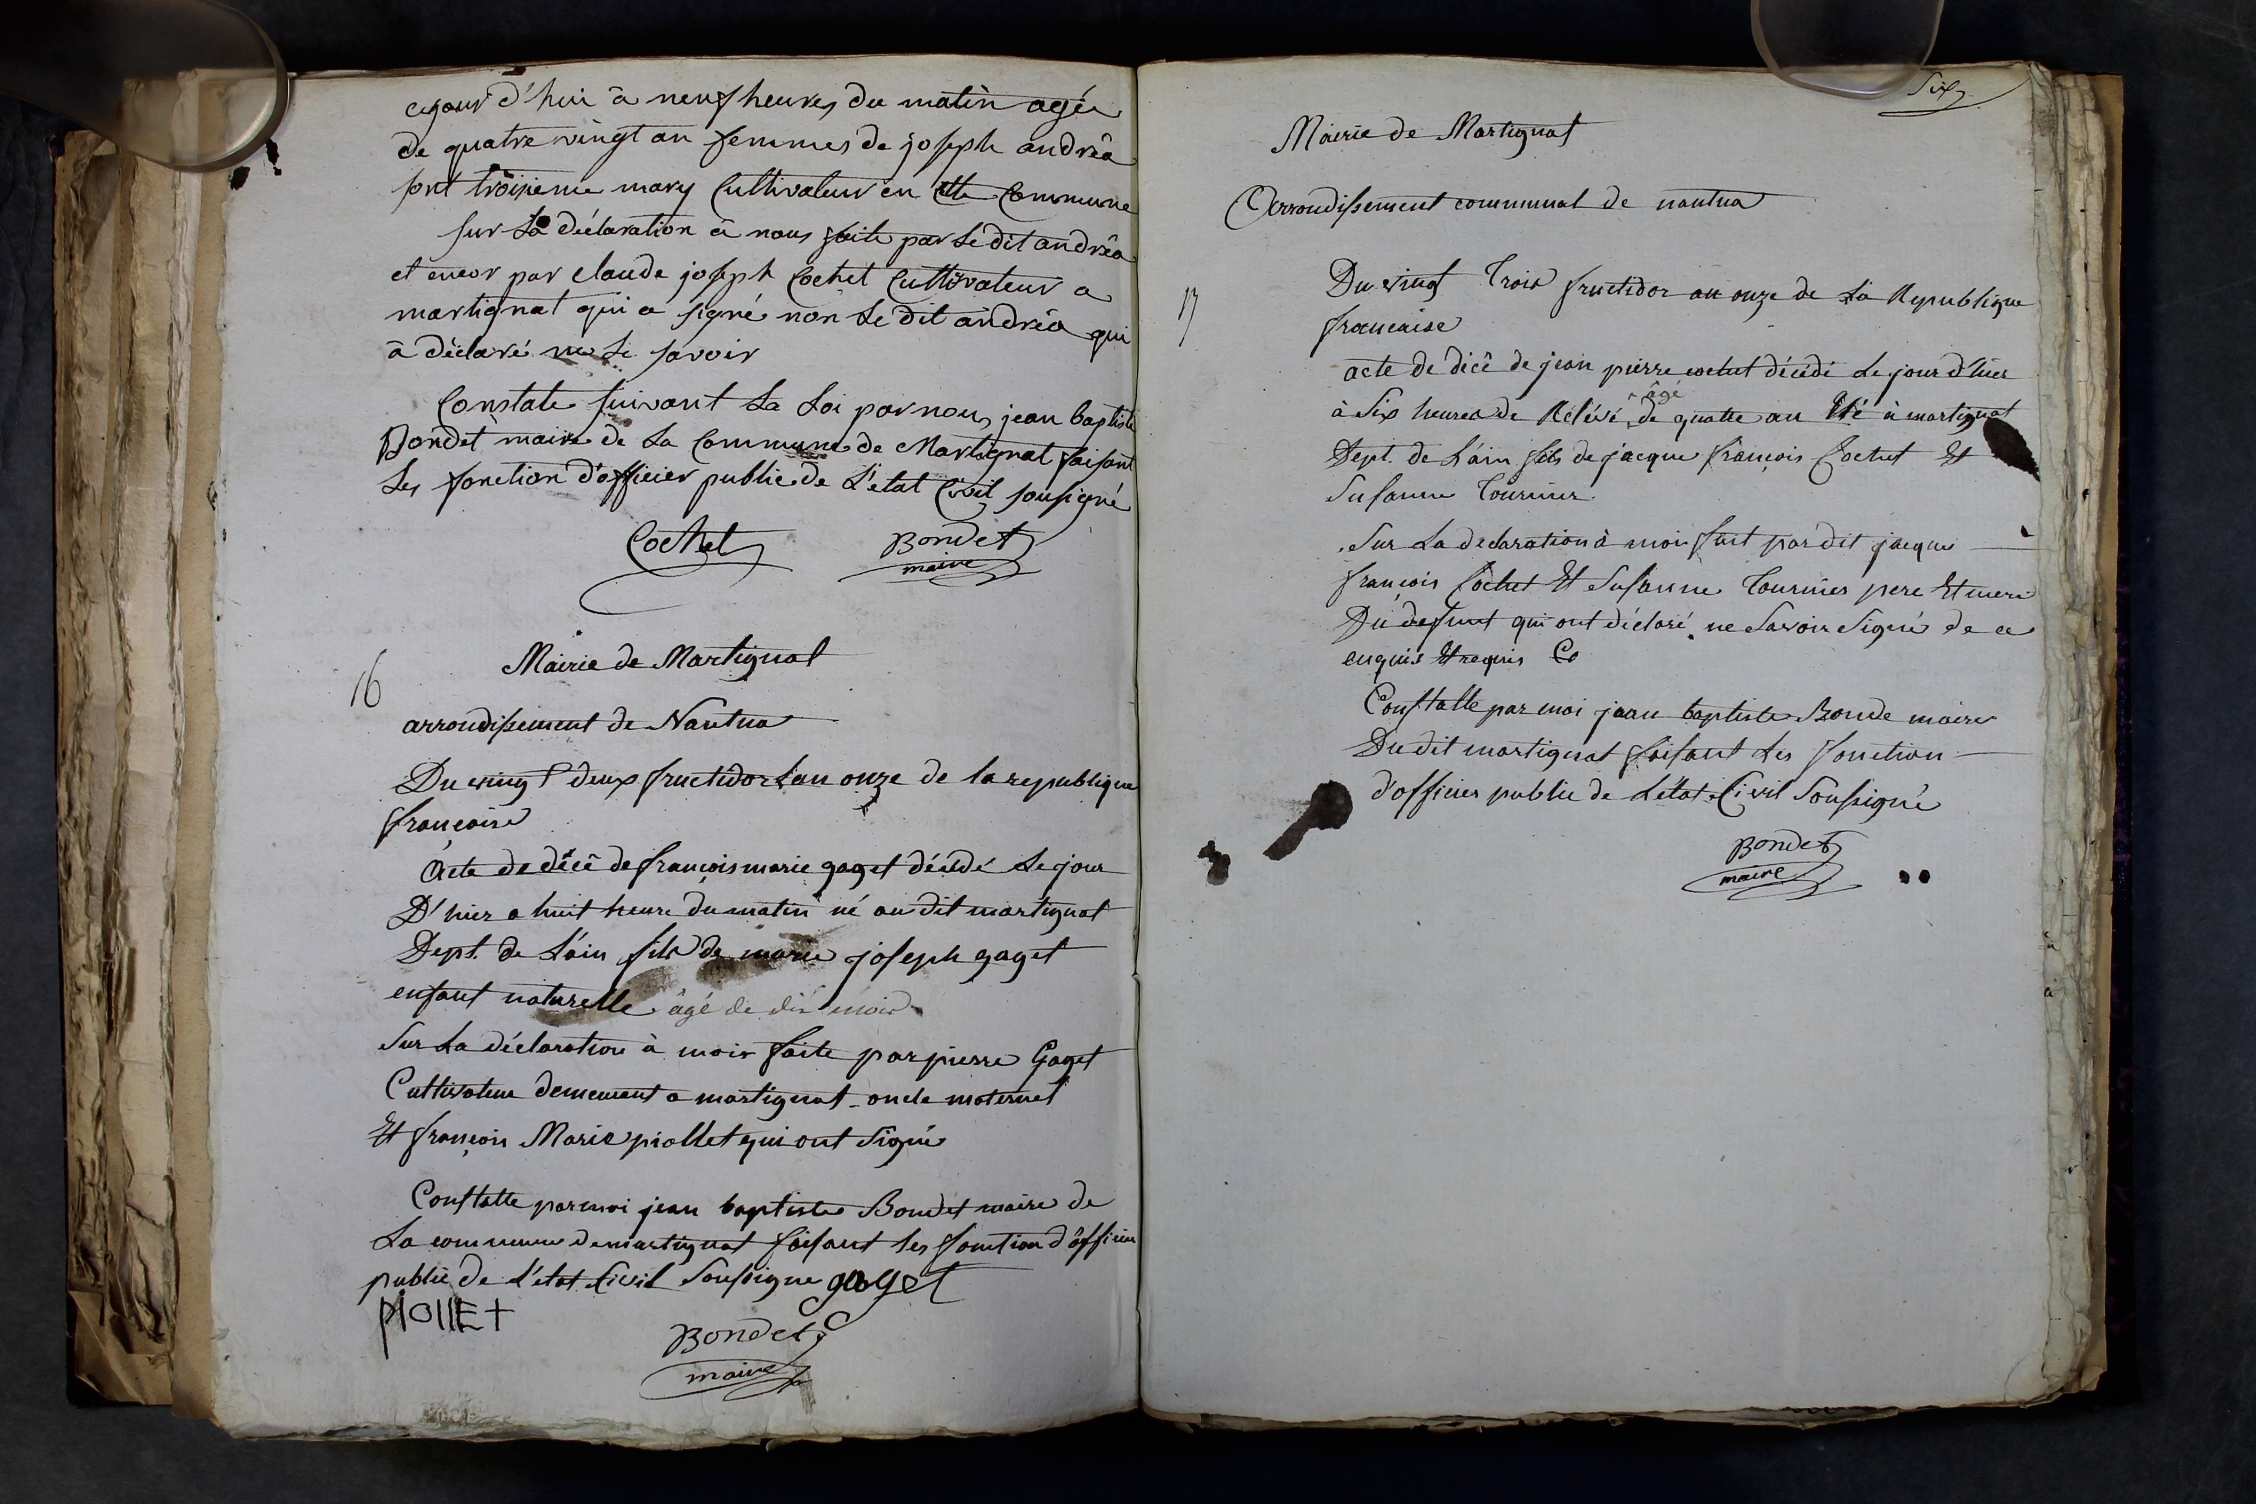 cejour d'hui à neuf heures du matin agée
de quatre vingt an femmes de joseph andréa
sont troisieme mary Cultivateur en cette Commune
sur La déclaration à nous faite par Le dit andréa
et encor par claude joseph Cochet Cultivateur a
martignat qui a signé non Le dit andréa qui
à déclaré ne Le savoir
Constaté suivant La Loi par nous jean baptiste
Bondet maire de La Commune de Martignat faisant
Les fonction d'officier public de L'etat Civil sousigné
Cochet Bondet
maire
16
Mairie de Martignat
arrondissement de Nantua
Du vingt deux fructidor Lan onze de la republique
françoise
Acte de décê de françois marie gaget décédé Le jour
D'hier a huit heure du matin né au dit martignat
Dept. de L'ain fils de marie joseph gaget
enfant naturelle âgé de dix mois
Sur La déclaration à moir faite par pierre Gaget
Cultivateur demeurent a martignat oncle maternel
Et françois Marie piollet qui ont Signé
Constatte par moi jean baptiste Bondet maire de
La commune de martignat faisant les fonction d'officier
public de L'etat Civil Soussigne gaget
PIOllEt
Bondet
maire
Six
Mairie de Martignat
Arrondissement communal de nantua
17
Du vingt Trois fructidor an onze de La Republique
francaise
acte de décê de jean pierre cochet décédé Le jour d'hier
à Six heures de Relévé âgé de quatre an Né à martignat
Dept. de L'ain fils de jacque françois Cochet Et
Susanne Tournier.
Sur La declaration à moir fait par dit jacques
françois Cochet Et Susanne Tournier pere Et mere
Du défunt qui ont déclaré ne Savoir Signé de ce
enquis Et requis Co
Constatte par moi jean baptiste Bonde maire
Du dit martignat faisant Les fonction
d'officier public de L'état Civil Soussigné
Bondet
maire